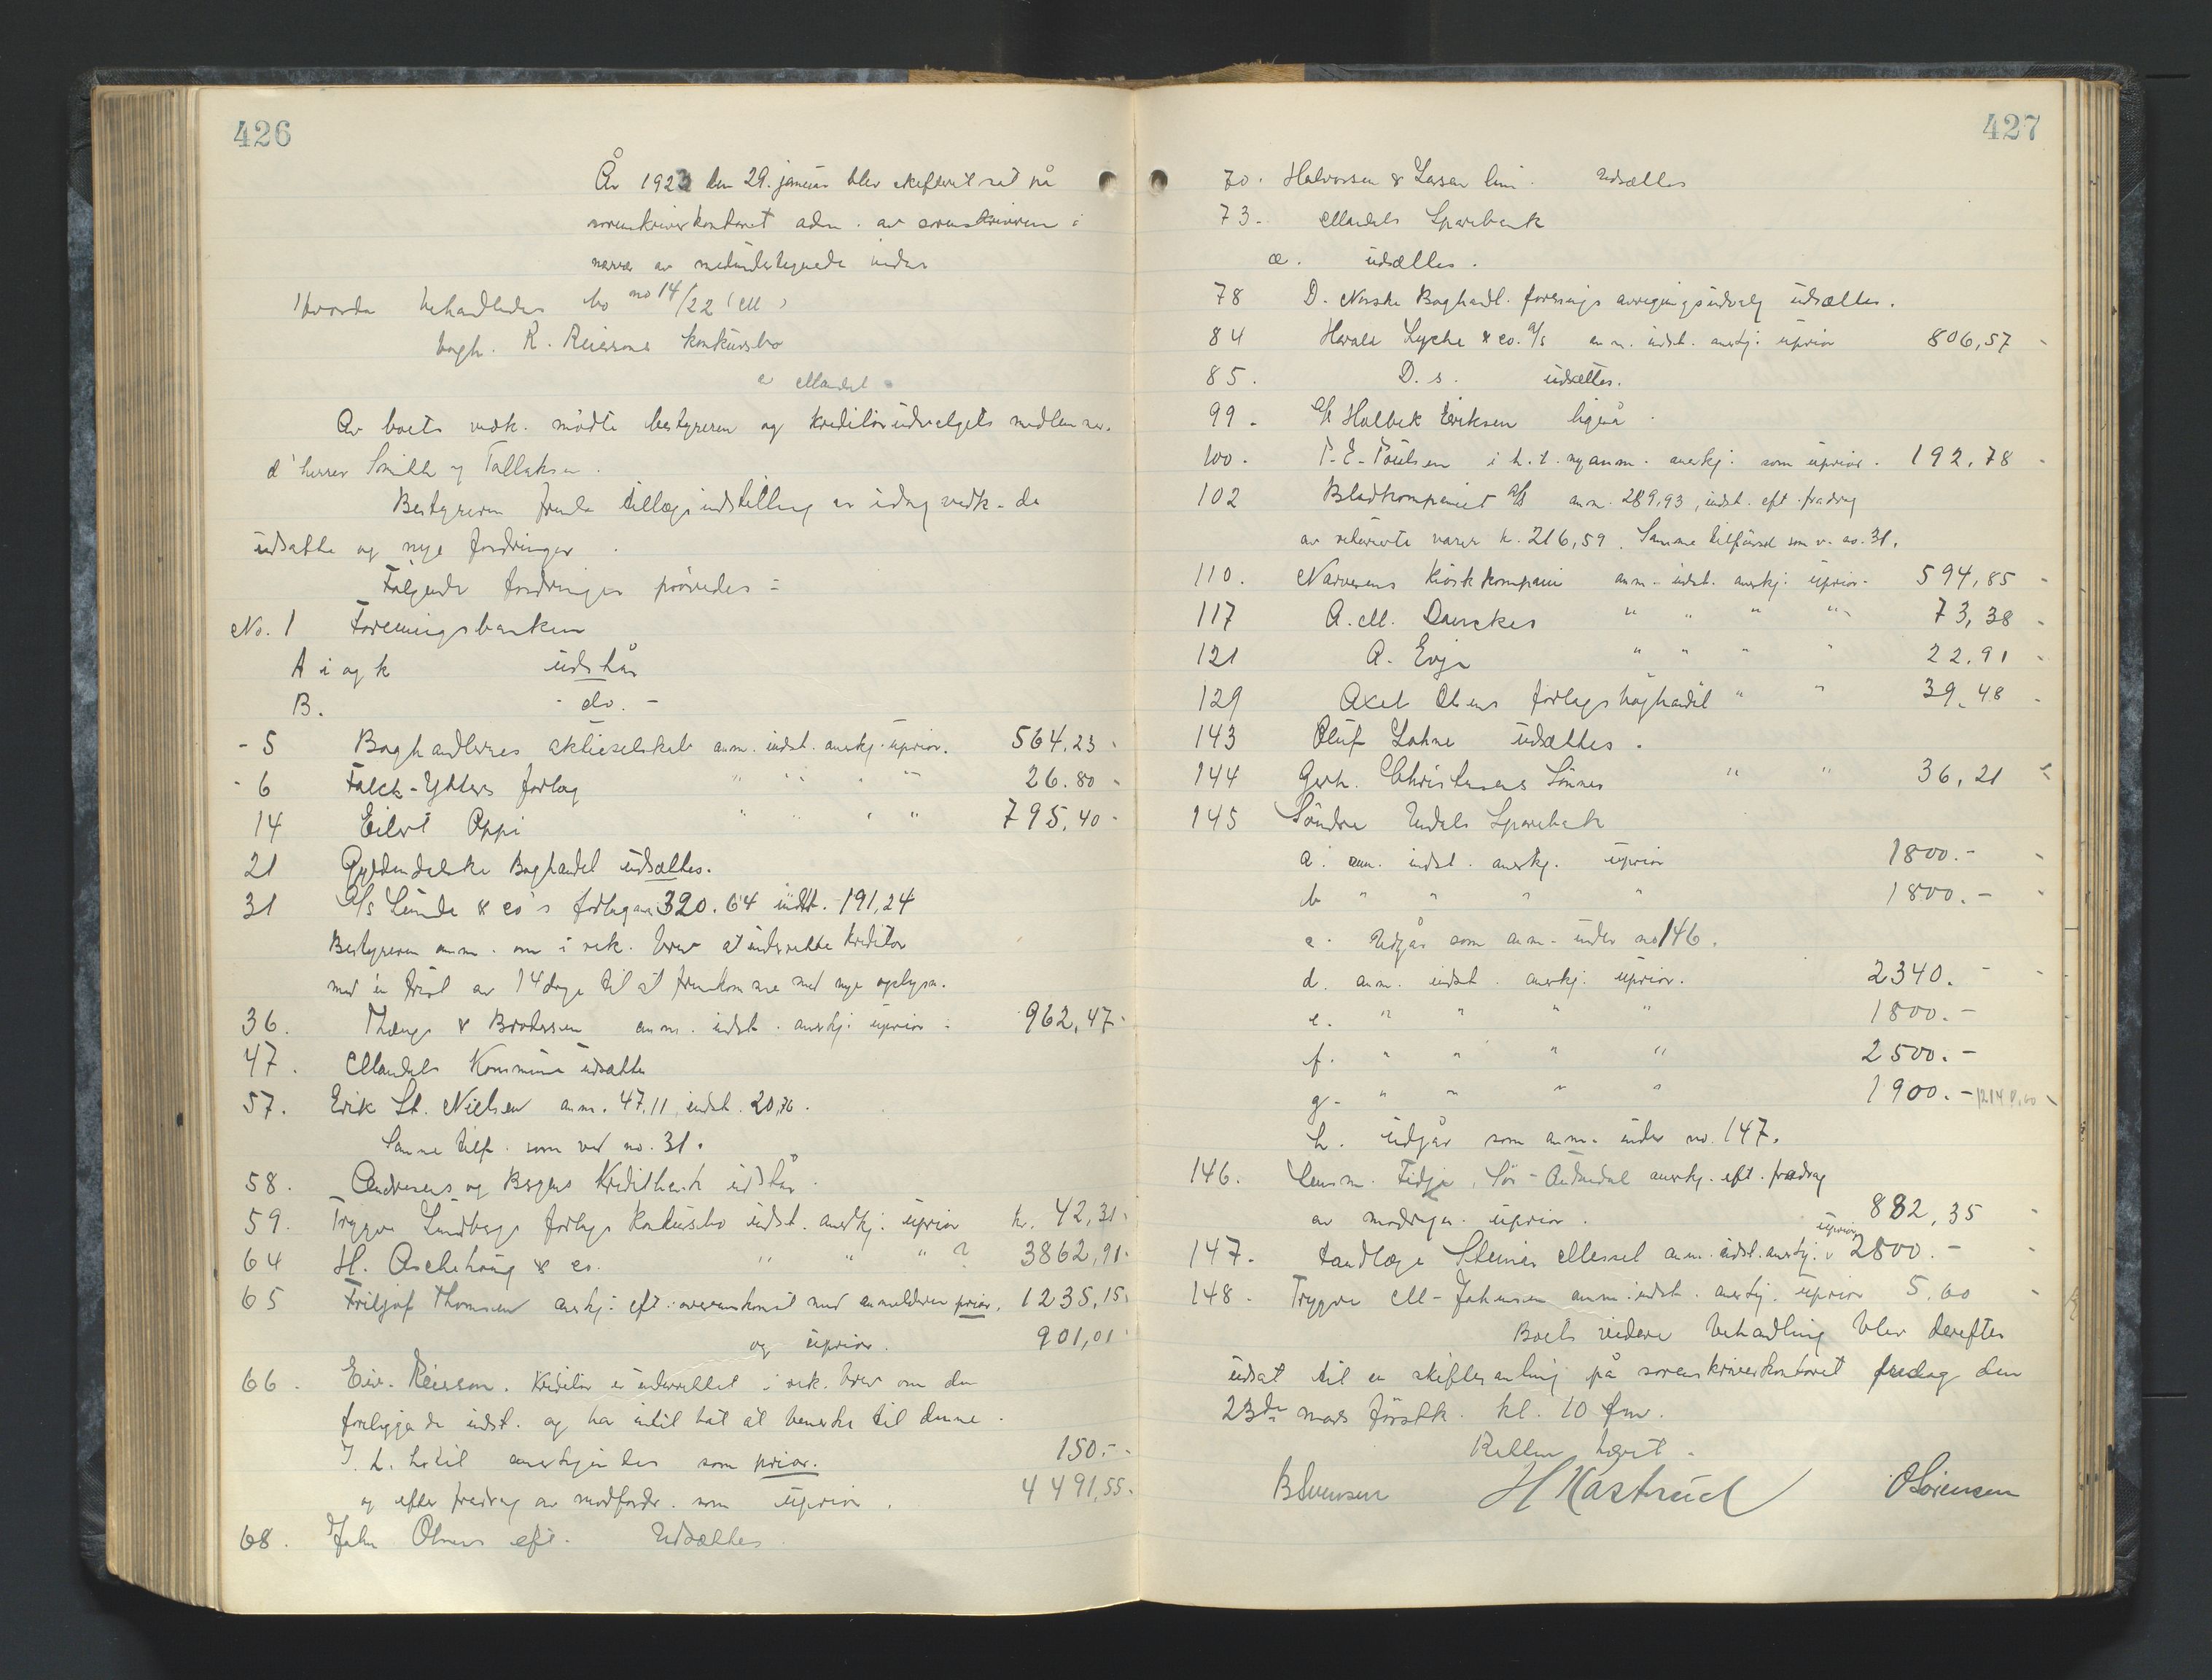 426
År 1923 den 29. januar blev skifterett sat på
sorenskriverkontoret adm. av sorenskriveren i
nærvær av medundertegnede vidner
Hvorda behandledes bo no 14/22 (M)
bogh. R. Reiersons konkursbo
i Mandal
Av boets vedk. mødte bestyreren og kreditorudvalgets medlemmer.
d'herrer Smith og Tallaksen.
Bestyreren fremla tillægsindstilling av idag vedk. de
udsatte og nye fordringer.
Følgende fordringer prøvedes:
No. 1 Foreningsbanken
A i og k udstår
B. - do. -
- 5 Boghandlernes aktieselskab anm. indst. anerkj. uprior. 564,23
- 6 Falck-Ytters forlag " " " " 26.80
14 Eilert Oppi " " " " 795,40
21 Gyldendalske Boghandel udsættes.
31 A/s Lunde & co's forlag anm. 320.64 indst. 191,24
Bestyreren anm. om i rek. brev at underrette kreditor
med en frist av 14 dage til at fremkomme med nye oplysn.
36. Thænge & Brodersen anm. indst. anerkj. uprior: 962,47
47. Mandals Kommune udsættes
57. Erik St. Nielsen anm. 47,11 indst. 20,76.
Samme tilf. som ved no. 31.
58. Andresens og Bergens Kreditbank udstår.
59. Trygve Lundbergs forlags konkursbo indst. anerkj. uprior kr. 42,31
64 H. Aschehoug & co. " " " ? 3862,91
65 Fritjof Thomsen anerkj. eft. overenskomst med anmelderen prior. 1235,15
og uprior. 901,01
66. Eiv. Reierson. Kreditor er underrettet i rek. brev om den
foreliggende indst. og har intet hat at bemerke til denne.
I h. hetil anerkjendes som prior. 150.-
og efter fradrag av modfordr. som uprior. 4491,55
68. John Olsens eft. Udsættes.
427
70. Halvorsen & Larsen lim. udsættes
73. Mandals Sparebank
a. udsættes.
78 D. Norske Boghandl. forenings avregningsudvalg udsættes.
84 Harald Lyche & co. A/s anm. indst. anerkj. uprior 806,57
85. D. s. udsættes.
99. A/s Holbæk Eriksen ligeså.
100. P. E. Poulsen i h. t. ny anm. anerkj. som uprior. 192,78
102 Bladkompaniet A/s anm. 289,93, indst. eft. fradrag
av returnerte varer k. 216,59. Samme tilførsel som v. no. 31.
110. Narvesens kioskkompani anm. indst. anerkj. uprior. 594,85
117 A. M. Danckes " " " " 73,38
121 A. Evja " " " " 22,91
129 Axel Olsens forlagsboghandel " " 39,48
143 Oluf Lohne udsættes.
144 Gerh. Christensens Sønner " " 36,21
145 Søndre Undals Sparebank
a. anm. indst. anerkj. uprior 1800.-
b " " " " 1800.-
c. Udgår som anm. under no 146.
d. anm. indst. anerkj. uprior. 2340.-
e. " " " " 1800.-
f. " " " " 2500.-
g. " " " " 1900.-
h. udgår som anm. under no. 147.
146. Lensm. Fidje, Sør-Audnedal anerkj. eft. fradrag
av modregn. uprior. 882,35
147. tandlæge Steinar Messel anm. indst. anerkj. uprior 2800.-
148. Trygve M. Johnsen anm. indst. anerkj. uprior 5,60
Boets videre behandling blev derefter
udsat til en skiftesamling på sorenskriverkontoret fredag den
23de mars førstk. kl. 10 fm.
Retten hævet.
B Svensen H Kastrud O Sørensen